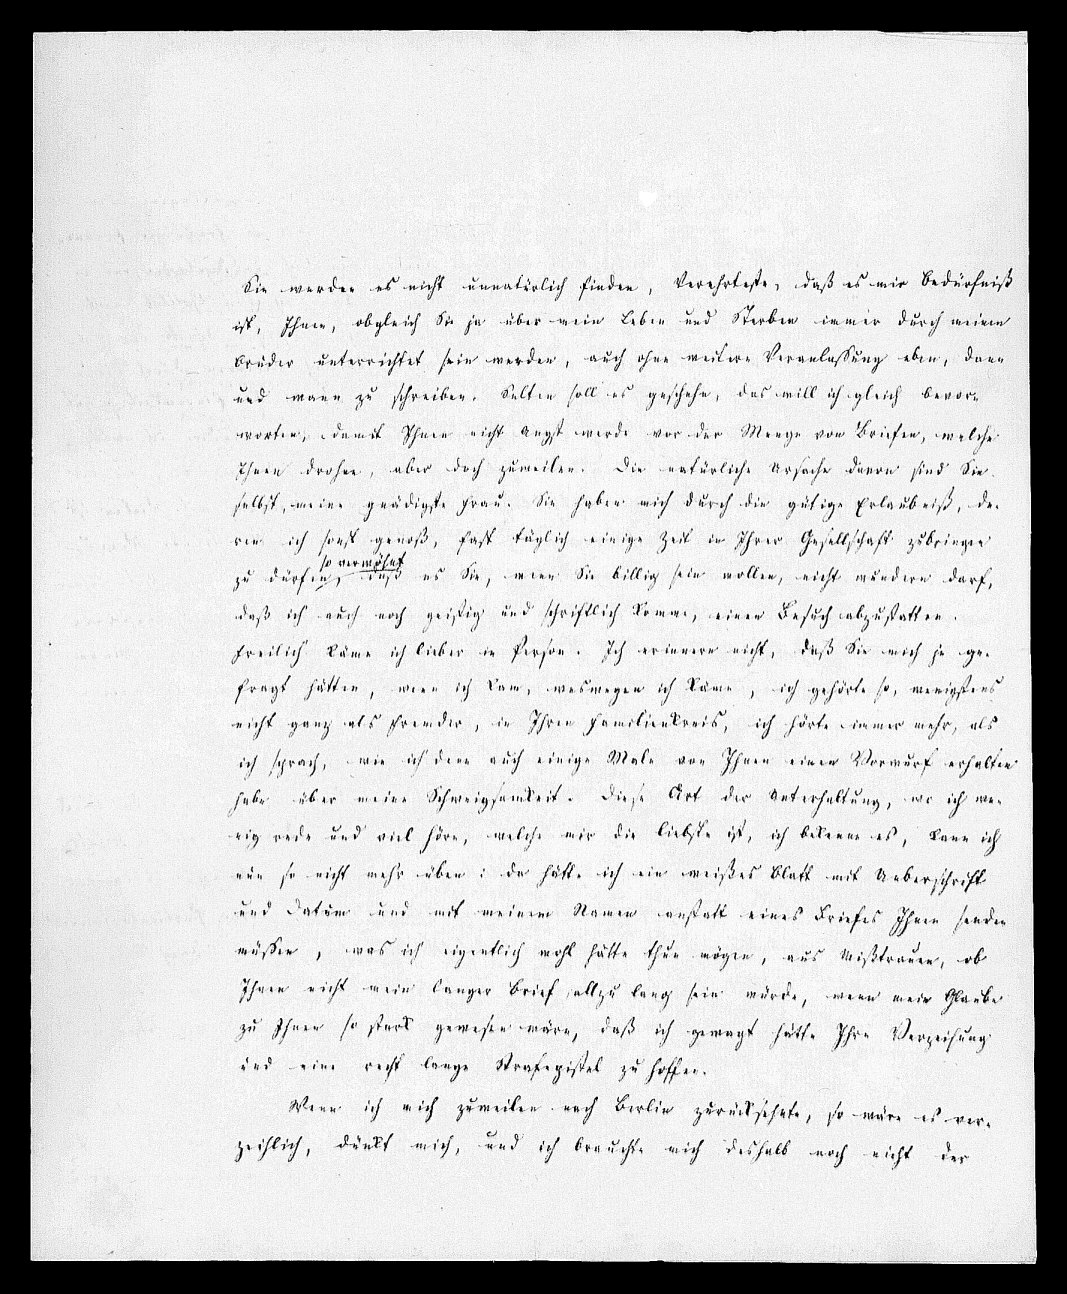 Sie werden es nicht unnatürlich finden, Verehrteste, daß es mir Bedürfniß
ist, Ihnen, obgleich Sie ja über mein Leben und Sterben immer durch meinen
Bruder unterrichtet sein werden, auch ohne weitere Veranlassung eben, dann
und wann zu schreiben. Selten soll es geschehn, das will ich gleich bevor-
worten, damit Ihnen nicht Angst werde vor der Menge von Briefen, welche
Ihnen drohen, aber doch zuweilen. Die natürliche Ursache davon sind Sie
selbst, meine gnädigste Frau. Sie haben mich durch die gütige Erlaubniß, de-
ren ich sonst genoß, fast täglich einige Zeit in Ihrer Gesellschaft zubringen
so verwöhnt
zu dürfen, daß es Sie, wenn Sie billig sein wollen, nicht wundern darf,
daß ich auch noch geistig und schriftlich komme, einen Besuch abzustatten.
Freilich käme ich lieber in Person. Ich erinnere nicht, daß Sie mich je ge-
fragt hätten, wenn ich kam, weswegen ich käme, ich gehörte so, wenigstens
nicht ganz als Fremder, in Ihren Familienkreis, ich hörte immer mehr, als
ich sprach, wie ich denn auch einige Male von Ihnen einen Vorwurf erhalten
habe über meine Schweigsamkeit. Diese Art der Unterhaltung, wo ich we-
nig rede und viel höre, welche mir die liebste ist, ich bekenne es, kann ich
nun so nicht mehr üben: da hätte ich ein weißes Blatt mit Ueberschrift
und Datum und mit meinem Namen anstatt eines Briefes Ihnen senden
müssen, was ich eigentlich wohl hätte thun mögen, aus Mißtrauen, ob
Ihnen nicht mein langer Brief allzu lang sein würde, wenn mein Glaube
zu Ihnen so stark gewesen wäre, daß ich gewagt hätte Ihre Verzeihung
und eine recht lange Strafepistel zu hoffen.
Wenn ich mich zuweilen nach Berlin zurücksehnte, so wäre es ver-
zeihlich, dünkt mich, und ich brauchte mich deshalb noch nicht der